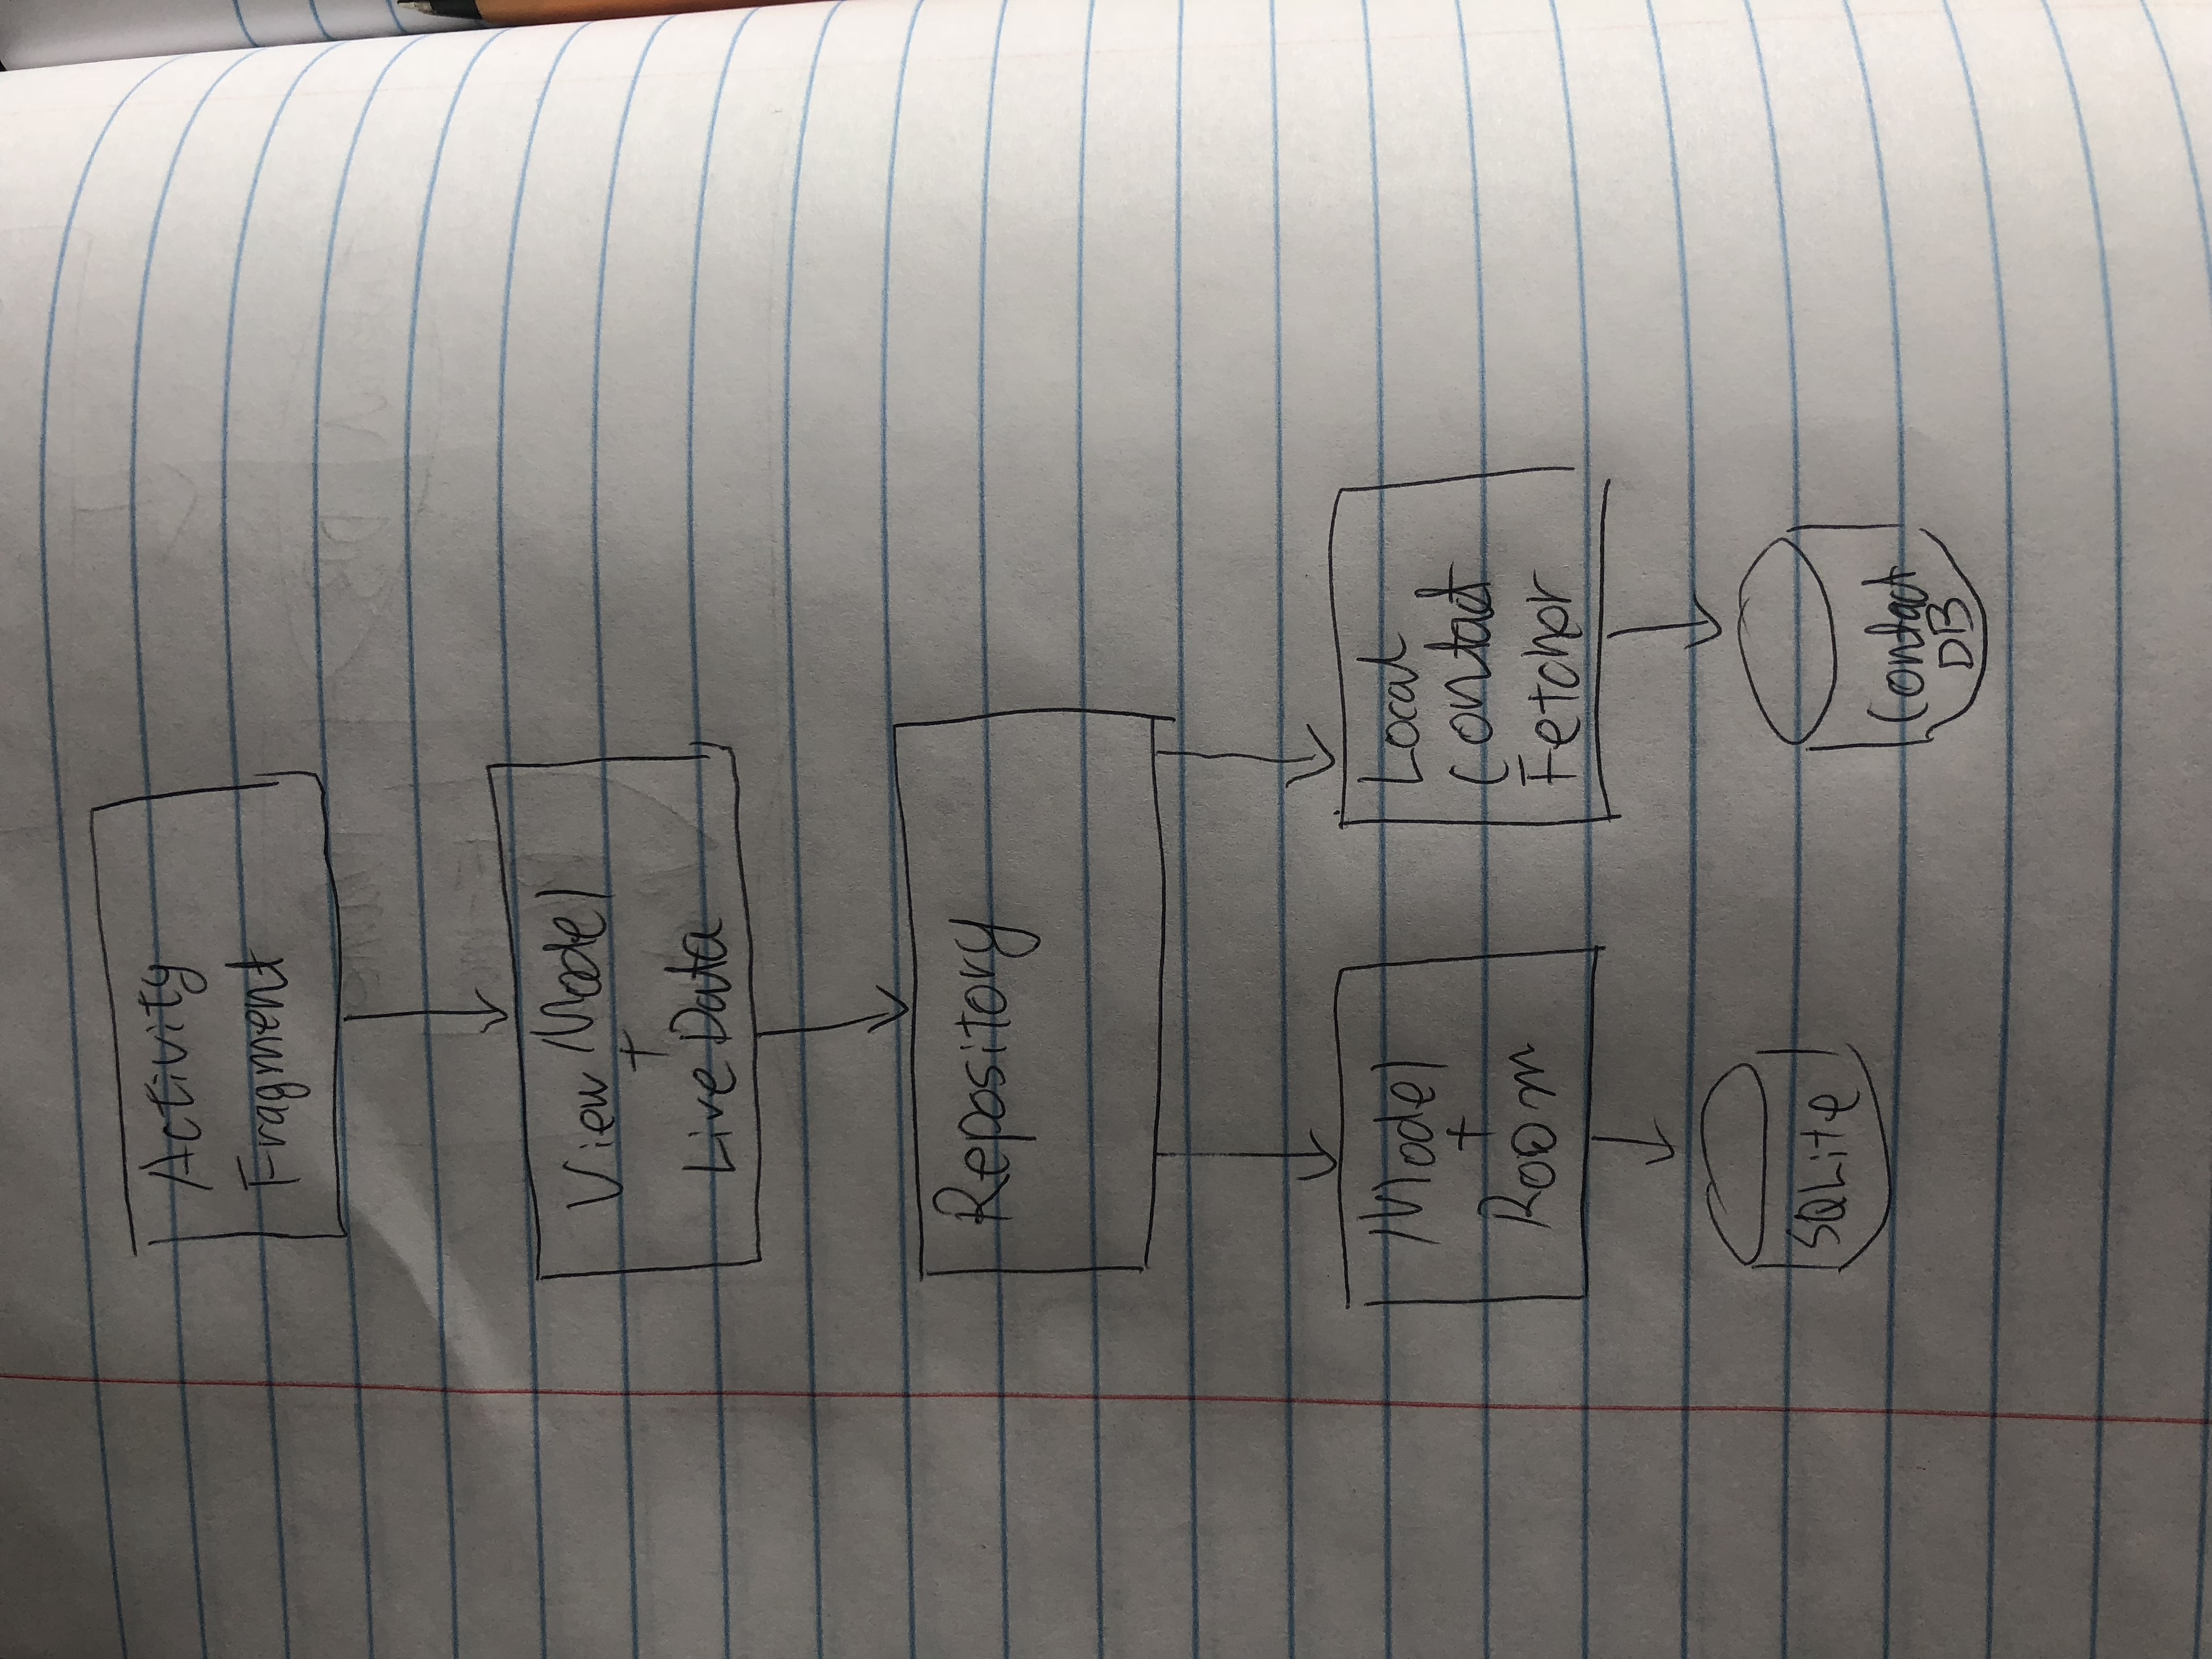 Activity
Fragment
View Model
+
Live Data
Repository
Model
+
Room
Local
Contact
Fetcher
SQLite
Contact
DB